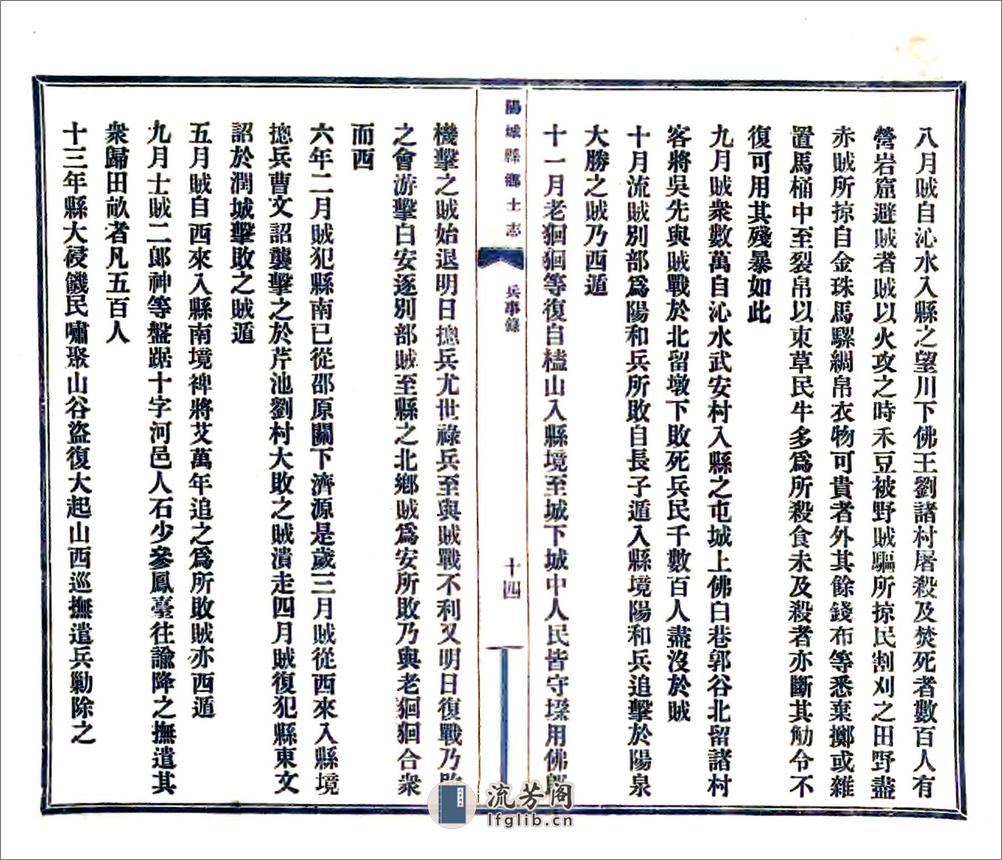 八月賊自沁水入縣之望川下佛王劉諸村屠殺及焚死者數百人有
營岩窟避賊者賊以火攻之時禾豆被野賊驅所掠民割刈之田野盡
赤賊所掠自金珠馬騾綢帛衣物可貴者外其餘錢布等悉棄擲或雜
置馬桶中至裂帛以束草民牛多爲所殺食未及殺者亦斷其觔令不
復可用其殘暴如此
九月賊衆數萬自沁水武安村入縣之屯城上佛白巷郭谷北留諸村
客將吳先與賊戰於北留墩下敗死兵民千數百人盡沒於賊
十月流賊別部爲陽和兵所敗自長子遁入縣境陽和兵追擊於陽泉
大勝之賊乃西遁
十一月老㹢㹢等復自𣖕山入縣境至城下城中人民皆守垜用佛郎
陽城縣鄉土志
兵事錄
十四
機擊之賊始退明日摠兵尤世祿兵至與賊戰不利又明日復戰乃敗
之會游擊白安逐別部賊至縣之北鄉賊爲安所敗乃與老㹢㹢合衆
而西
六年二月賊犯縣南已從邵原關下濟源是歲三月賊從西來入縣境
摠兵曹文詔襲擊之於芹池劉村大敗之賊潰走四月賊復犯縣東文
詔於潤城擊敗之賊遁
五月賊自西來入縣南境裨將艾萬年追之爲所敗賊亦西遁
九月士賊二郎神等盤踞十字河邑人石少參鳳臺往諭降之撫遣其
衆歸田畝者凡五百人
十三年縣大祲饑民嘯聚山谷盜復大起山西巡撫遣兵勦除之
流芳阁
lfglib.cn